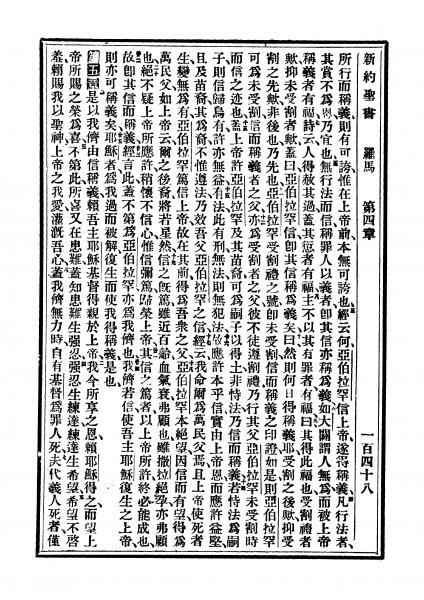 新約聖書 羅馬 第四章 一百四十八
所行而稱義、則有可誇、惟在上帝前、本無可誇也、經云何、亞伯拉罕信上帝、遂得稱義、凡行法者、
其賞不爲恩、乃宜也、無行法而信稱罪人以義者、卽其信亦稱爲義、如大闢謂人無爲、而被上帝
稱義者有福、詩云、人得赦其過、蓋其愆者有福、主不以其有罪者有福、曰、其得此福也、受割禮者
歟、抑未受割者歟、蓋曰、亞伯拉罕信、卽其信稱爲義矣、曰、然則何日得稱義耶、受割之後歟、抑受
割之先歟、非後也、乃先也、亞伯拉罕受割禮之號、卽未受割信而稱義之印證、如是則亞伯拉罕
可爲未受割信而稱義者之父、亦爲受割者之父、彼不徒遵割禮、乃行其父亞伯拉罕未受割時
而信之迹也、蓋上帝許亞伯拉罕、及其苗裔、可爲嗣子、以得土、非恃法、乃信而稱義、若恃法爲嗣
子、則信歸烏有、許亦無益、有法此有刑、無法則無犯法、故應許本乎信、實由上帝恩、而應許益堅、
且及苗裔、其爲裔、不惟遵法、乃效吾父亞伯拉罕之信、經云、我命爾爲萬民父焉、且上帝使死者
生、變無爲有、亞伯拉罕篤信上帝、故在其前、得爲吾衆之父、亞伯拉罕本絕望、因信而有望、得爲
萬民父、如上帝云、爾之後裔、將若星然、信之旣篤、雖近百齡、血氣衰、弗顧也、雖撒拉絕孕、亦弗顧
也、絕不疑上帝所應許、稍懷不信心、惟信彌篤、歸榮上帝、其信之篤者、以上帝所許、終必能成也、
故卽其信而稱義、經言此、蓋不第爲亞伯拉罕、亦爲我儕也、我儕若信使吾主耶穌復生之上帝、
則亦可稱義矣、耶穌者、爲我過而被解、復生而使我得稱義、是也、
第五章 是以我儕由信稱義、賴吾主耶穌基督、得親於上帝、我今所享之恩、賴耶穌得之、而望上
帝所賜之榮爲喜、不第此所喜、又在患難、蓋知患難生强忍、强忍生練達、練達生希望、希望不啓
羞、賴賜我以聖神、上帝之我愛、灌漑吾心、蓋我儕無力時、自有基督爲罪人死、夫代義人死者僅